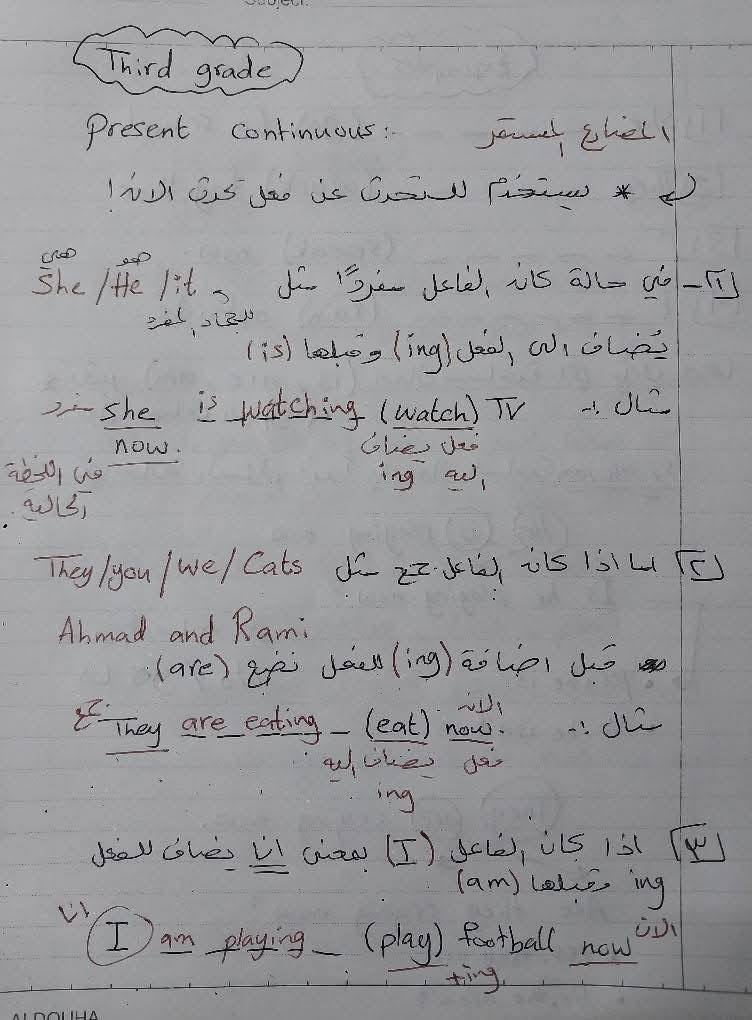 Subject:
Third grade
Present continuous:- المضارع المستمر
* يستخدم للتحدث عن فعل يحدث الان!
هي هو
١- في حالة كان الفاعل مفردًا مثل She / He / it
للجماد المفرد
يُضاف الى الفعل (ing) وقبلها (is)
مثال :- she is watching (watch) TV مفرد
now. فعل يضاف
في اللحظة اليه ing
الحالية.
٢ اما اذا كان الفاعل جمع مثل They/you/we/Cats
Ahmad and Rami
قبل اضافة (ing) للفعل نضع (are)
الان
مثال :- They are eating (eat) now. جمع
فعل يضاف اليه
ing
٣ اذا كان الفاعل (I) بمعنى انا يضاف للفعل
ing وقبلها (am)
انا I am playing (play) football now الان
+ing
ALDOUHA